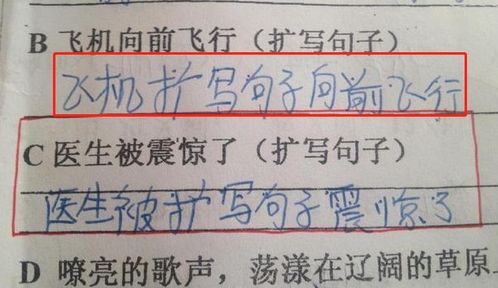 B 飞机向前飞行（扩写句子）
飞机扩写句子向前飞行
C 医生被震惊了（扩写句子）
医生被扩写句子震惊了
D 嘹亮的歌声，荡漾在辽阔的草原上